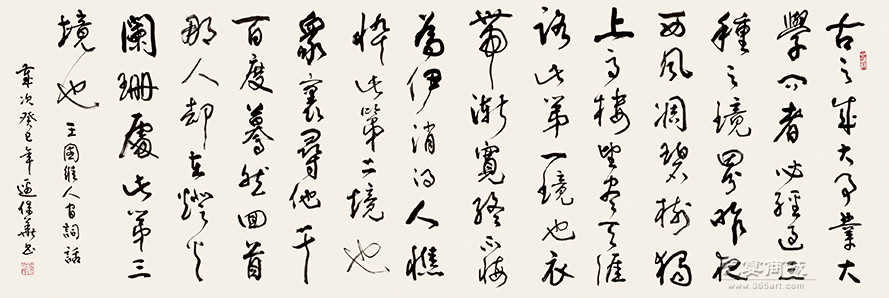 古之成大事業大
學問者必經過三
種之境界昨夜
西風凋碧樹獨
上高樓望盡天涯
路此第一境也衣
帶漸寬終不悔
為伊消得人憔
悴此第二境也
眾裏尋他千
百度驀然回首
那人却在燈火
闌珊處此第三
境也
王國維人間詞話
歲次癸巳年
www.365art.com